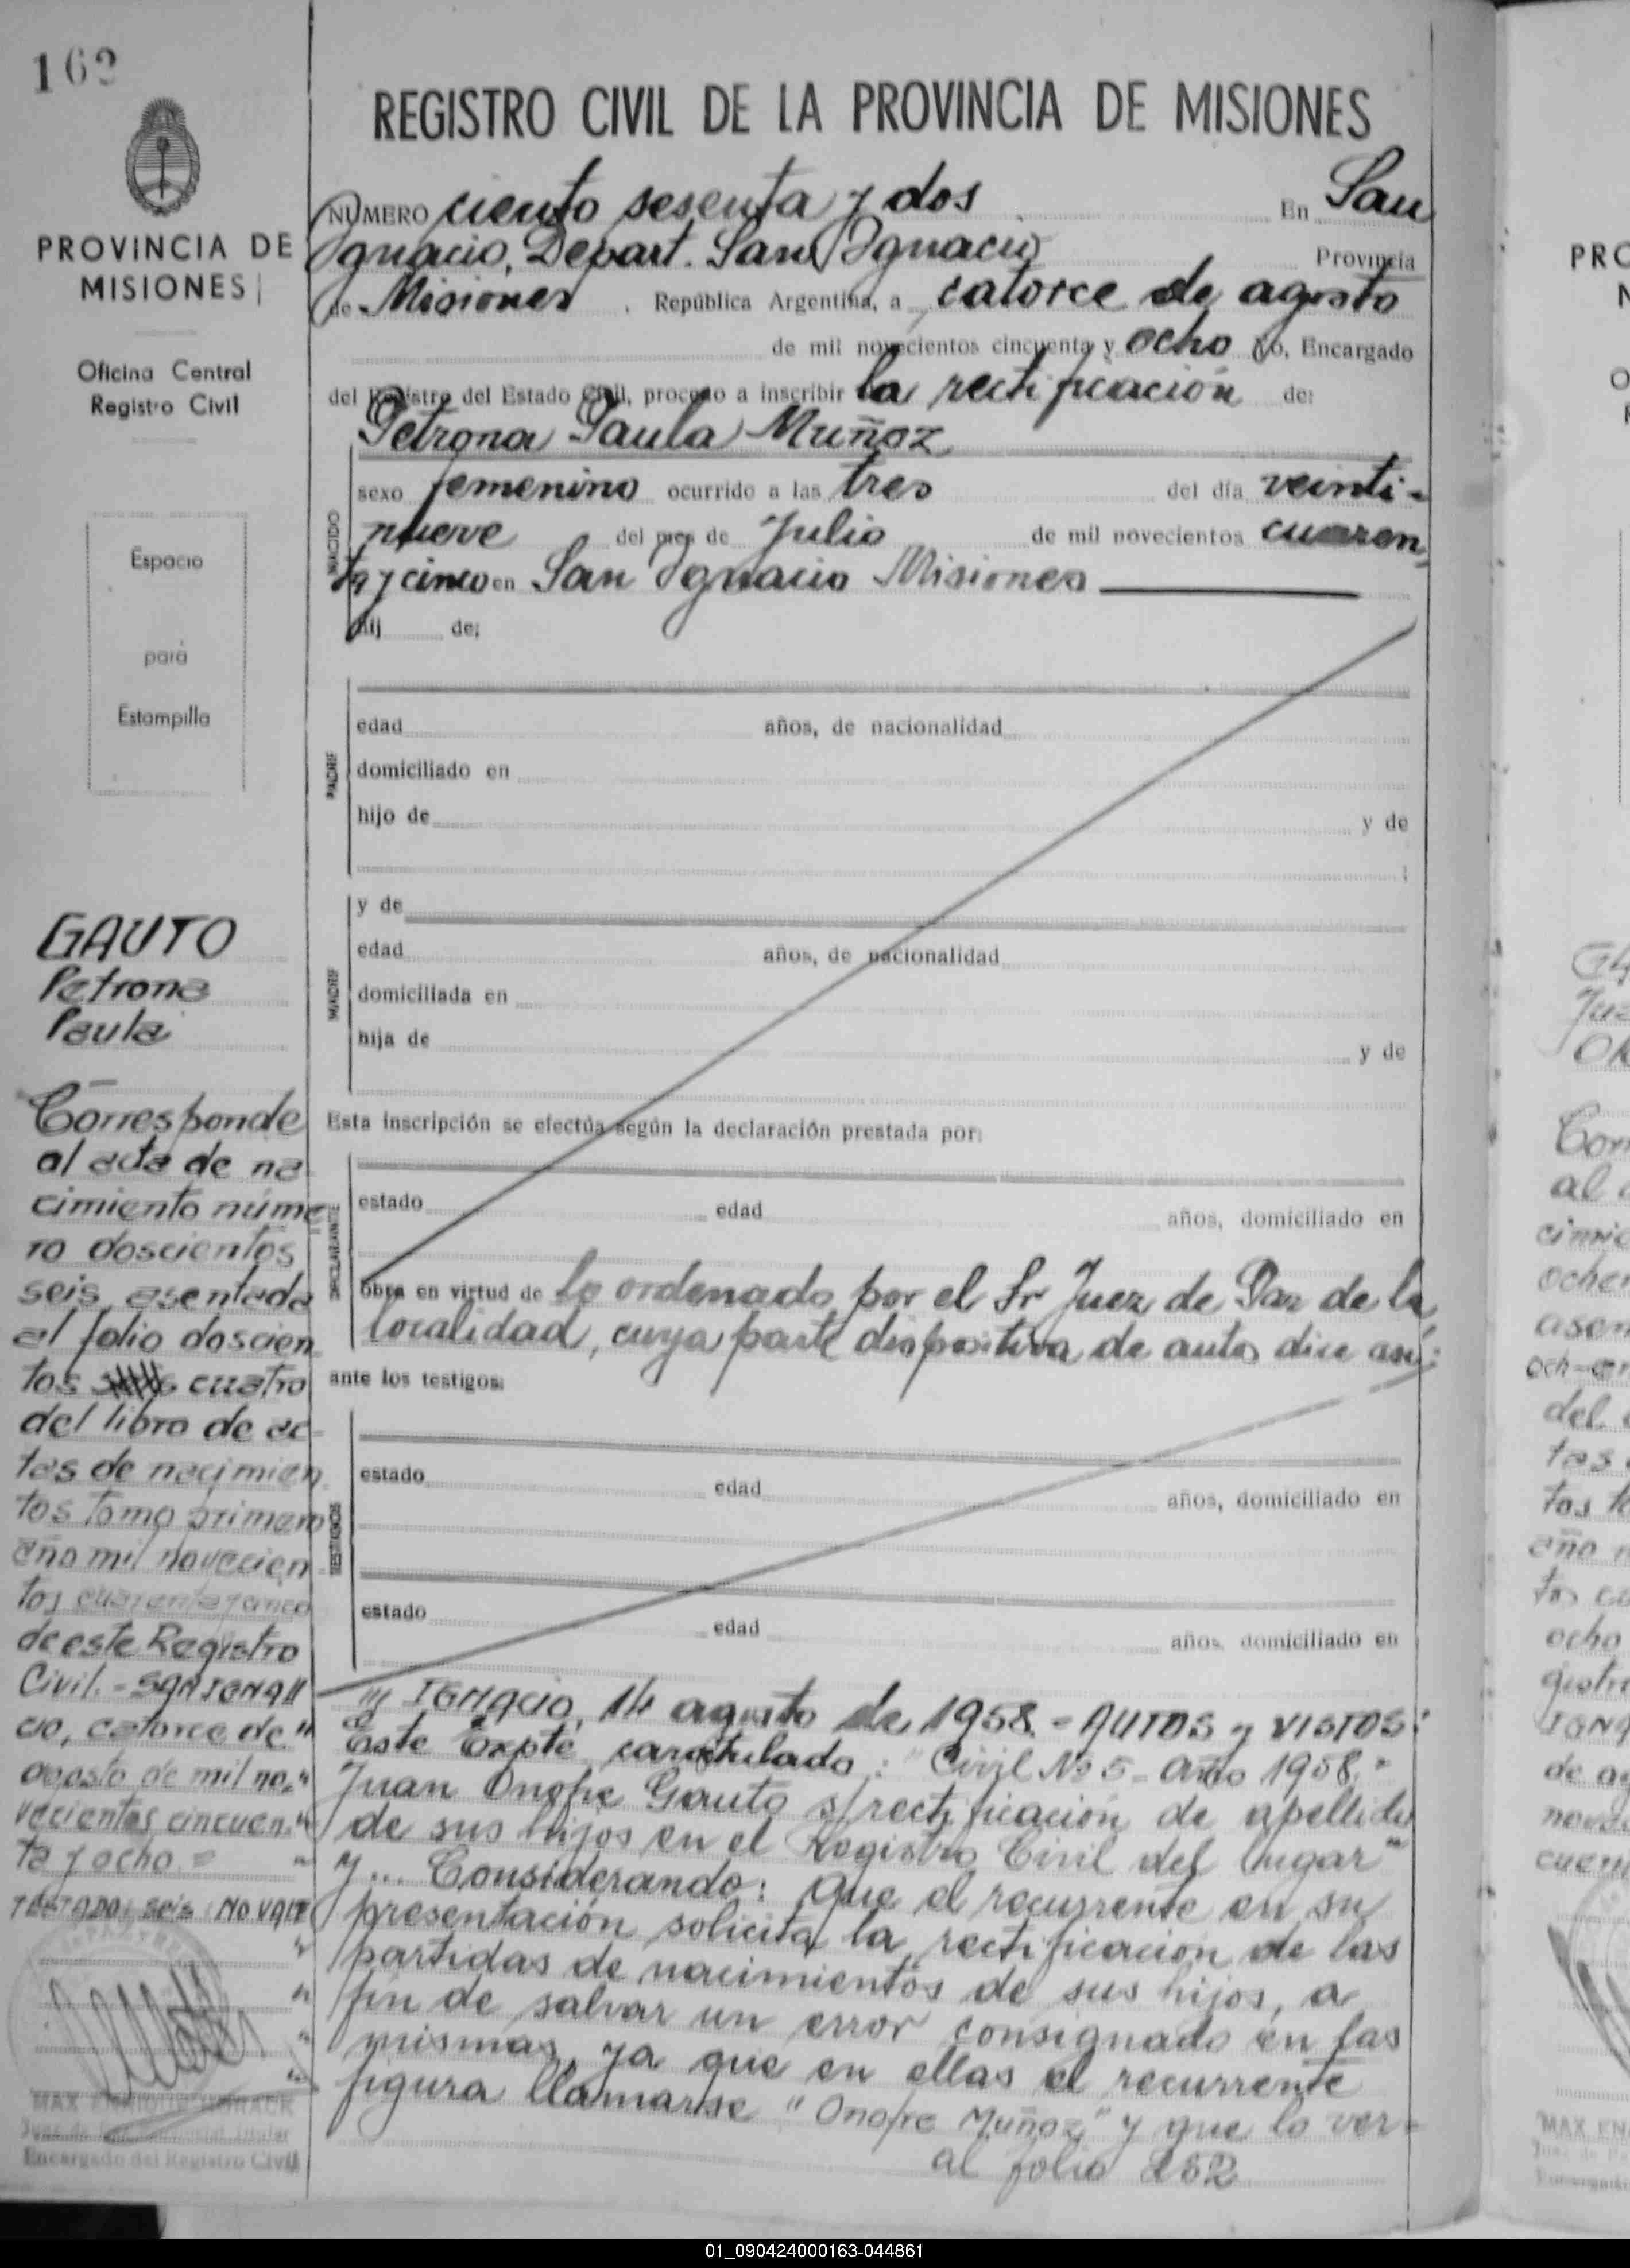 162
PROVINCIA DE
MISIONES
Oficina Central
Registro Civil
Espacio
para
Estampilla
GAUTO
Petrona
Paula
Corresponde
al acta de na
cimiento núme
ro doscientos
seis asentada
al folio doscien
tos seis cuatro
del libro de ac-
tas de nacimien
tos tomo primero
año mil novecien
tos cuarenta y cinco
de este Registro
Civil.- SAN IGNA//
cio, catorce de "
agosto de mil no,"
vecientos cincuen."
ta y ocho = "
TESTADO: seis: NO VALE
MAX ENRIQUE
Encargado del Registro Civil
REGISTRO CIVIL DE LA PROVINCIA DE MISIONES
NUMERO ciento sesenta y dos En San
Ignacio, Depart. San Ignacio Provincia
de Misiones, República Argentina, a catorce de agosto
de mil novecientos cincuenta y ocho yo, Encargado
del Registro del Estado Civil, procedo a inscribir la rectificación de:
Petrona Paula Muñoz
NACIDO
sexo femenino ocurrido a las tres del día veinti-
nueve del mes de Julio de mil novecientos cuaren
ta y cinco en San Ignacio Misiones
hij de:
PADRE
edad años, de nacionalidad
domiciliado en
hijo de y de
;
MADRE
y de
edad años, de nacionalidad
domiciliada en
hija de y de
Esta inscripción se efectúa según la declaración prestada por:
DECLARANTE
estado edad años, domiciliado en
obra en virtud de lo ordenado por el Sr Juez de Paz de la
localidad, cuya parte dispositiva de autos dice así:
ante los testigos:
TESTIGOS
estado edad años, domiciliado en
estado edad años, domiciliado en
/// IGNACIO, 14 agosto de 1958.- AUTOS y VISTOS:
Este Expte caratulado: "Civil Nº 5 - Año 1958."
Juan Onofre Gauto s/rectificación de apellido
de sus hijos en el Registro Civil del lugar"
y... Considerando: Que el recurrente en su
presentación solicita la rectificación de las
partidas de nacimientos de sus hijos, a
fin de salvar un error consignado en las
mismas, ya que en ellas el recurrente
figura llamarse "Onofre Muñoz" y que lo ver=
al folio 252
PRO
01_090424000163-044861